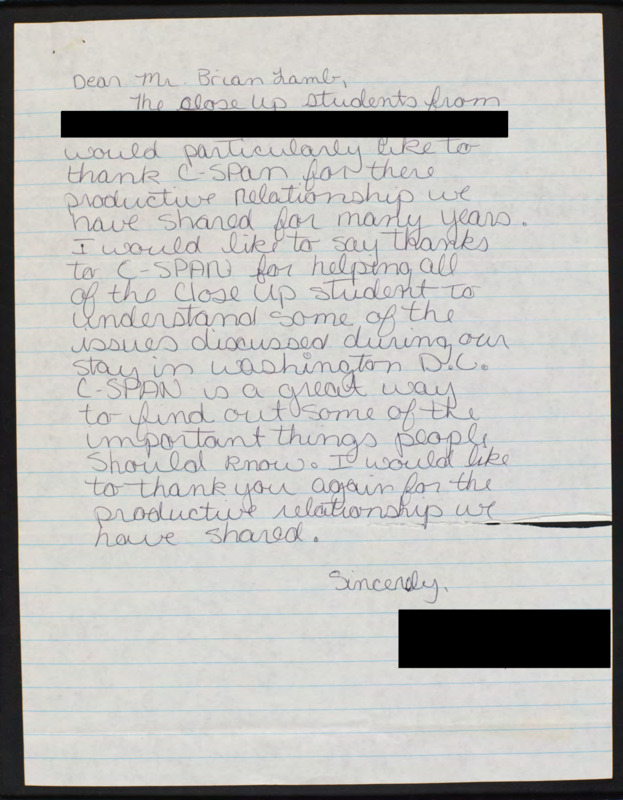 Dear Mr. Brian Lamb,
The close up students from
would particularly like to
thank C-SPAN for there
productive relationship we
have shared for many years.
I would like to say thanks
to C-SPAN for helping all
of the Close Up student to
understand some of the
issues discussed during our
stay in Washington D.C.
C-SPAN is a great way
to find out some of the
important things people
should know. I would like
to thank you again for the
productive relationship we
have shared.
Sincerely,